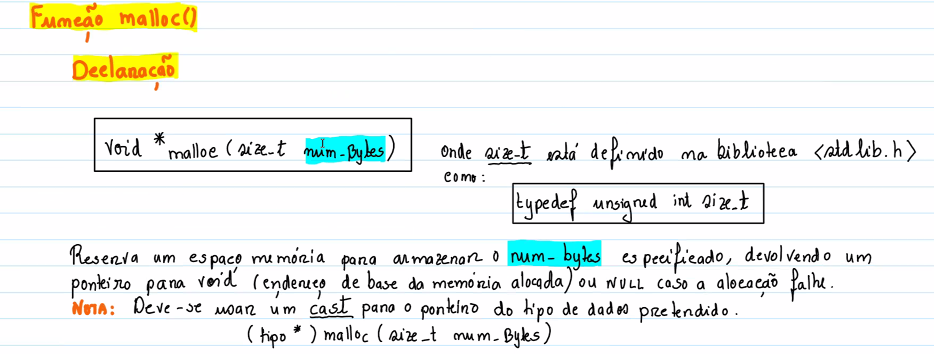 Função malloc()
Declaração
void *malloc (size_t num_Bytes)
onde size_t está definido na biblioteca <stdlib.h>
como:
typedef unsigned int size_t
Reserva um espaço memória para armazenar o num_bytes especificado, devolvendo um
ponteiro para void (endereço de base da memória alocada) ou NULL caso a alocação falhe.
NOTA: Deve-se usar um cast para o ponteiro do tipo de dados pretendido.
(tipo *) malloc (size_t num_Bytes)